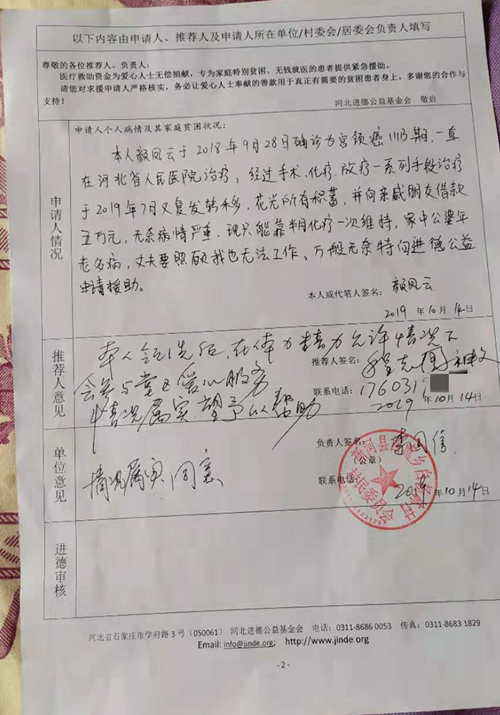 以下内容由申请人、推荐人及申请人所在单位/村委会/居委会负责人填写
尊敬的各位推荐人、负责人:
医疗救助资金为爱心人士无偿捐献，专为家庭特别贫困、无钱就医的患者提供紧急援助。
请您对求援申请人严格核实，务必让爱心人士奉献的善款用于真正有需要的贫困患者身上，多谢您的合作与
支持!
河北进德公益基金会 敬启
申请人情况
申请人个人病情及其家庭贫困状况:
本人 凤云于2018年9月28日确诊为宫颈癌IIIB期，一直
在河北省人民医院治疗，经过手术、化疗、放疗一系列手段治疗
于2019年7月又复发转移，花光所有积蓄，并向亲戚朋友借款
五万元，无奈病情严重，现只能靠半月化疗一次维持，家中公婆年
老多病，丈夫要照顾我也无法工作。万般无奈特向进德公益
申请援助。
本人或代笔人签名: 凤云
2019年10月14日
推荐人意见
本人 在体力精力允许情况下
会参与堂区爱心服务
情况属实望予以帮助
推荐人签名:
联系电话: 1760319
2019年10月14日
单位意见
情况属实 同意
负责人签名: 李 信
(公章)
联系电话:
2019年10月14日
村民委员会
进德审核
河北省石家庄市学府路3号 (050061) 河北进德公益基金会 电话: 0311-8686 0053 传真: 0311-8683 1829
Email: info@jinde.org; http://www.jinde.org
- 2 -